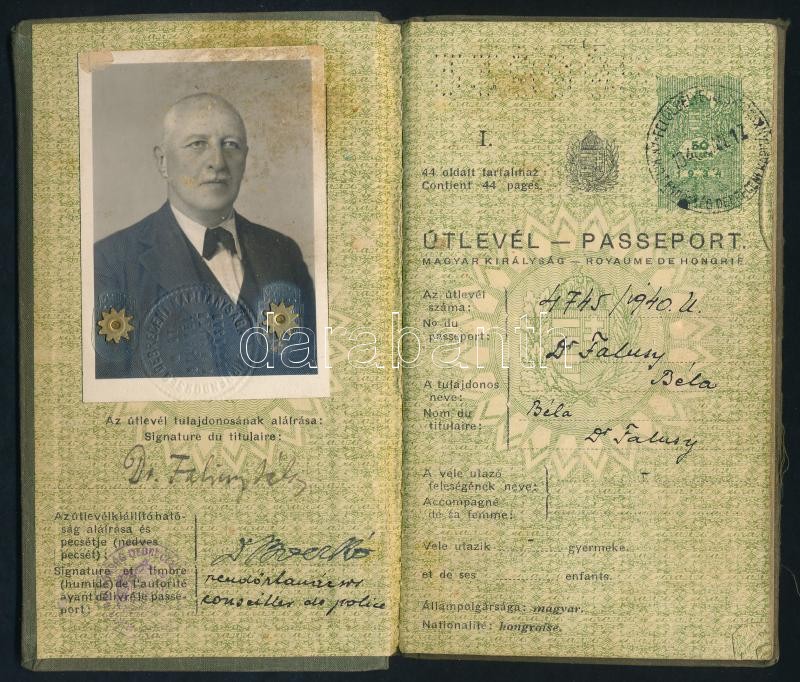 Az útlevél tulajdonosának aláírása:
Signature du titulaire:
Dr. Falusy Béla
Az útlevélkiállító ható-
ság aláírása és
pecsétje (nedves
pecsét):
Signature et timbre
(humide) de l'autorité
ayant délivré le passe-
port)
rendőrtanácsos
conseiller de police
I.
44 oldalt tartalmaz
Contient 44 pages.
50
1934
ÚTLEVÉL — PASSEPORT.
MAGYAR KIRÁLYSÁG — ROYAUME DE HONGRIE.
Az útlevél
száma:
No du
passeport:
4745/1940. U.
A tulajdonos
neve:
Nom du
titulaire:
Dr Falusy
Béla
Béla
Dr Falusy
A vele utazó
feleségének neve:
Accompagné
de sa femme:
Vele utazik - gyermeke.
et de ses - enfants.
Állampolgársága: magyar.
Nationalité: hongroise.
darabanth